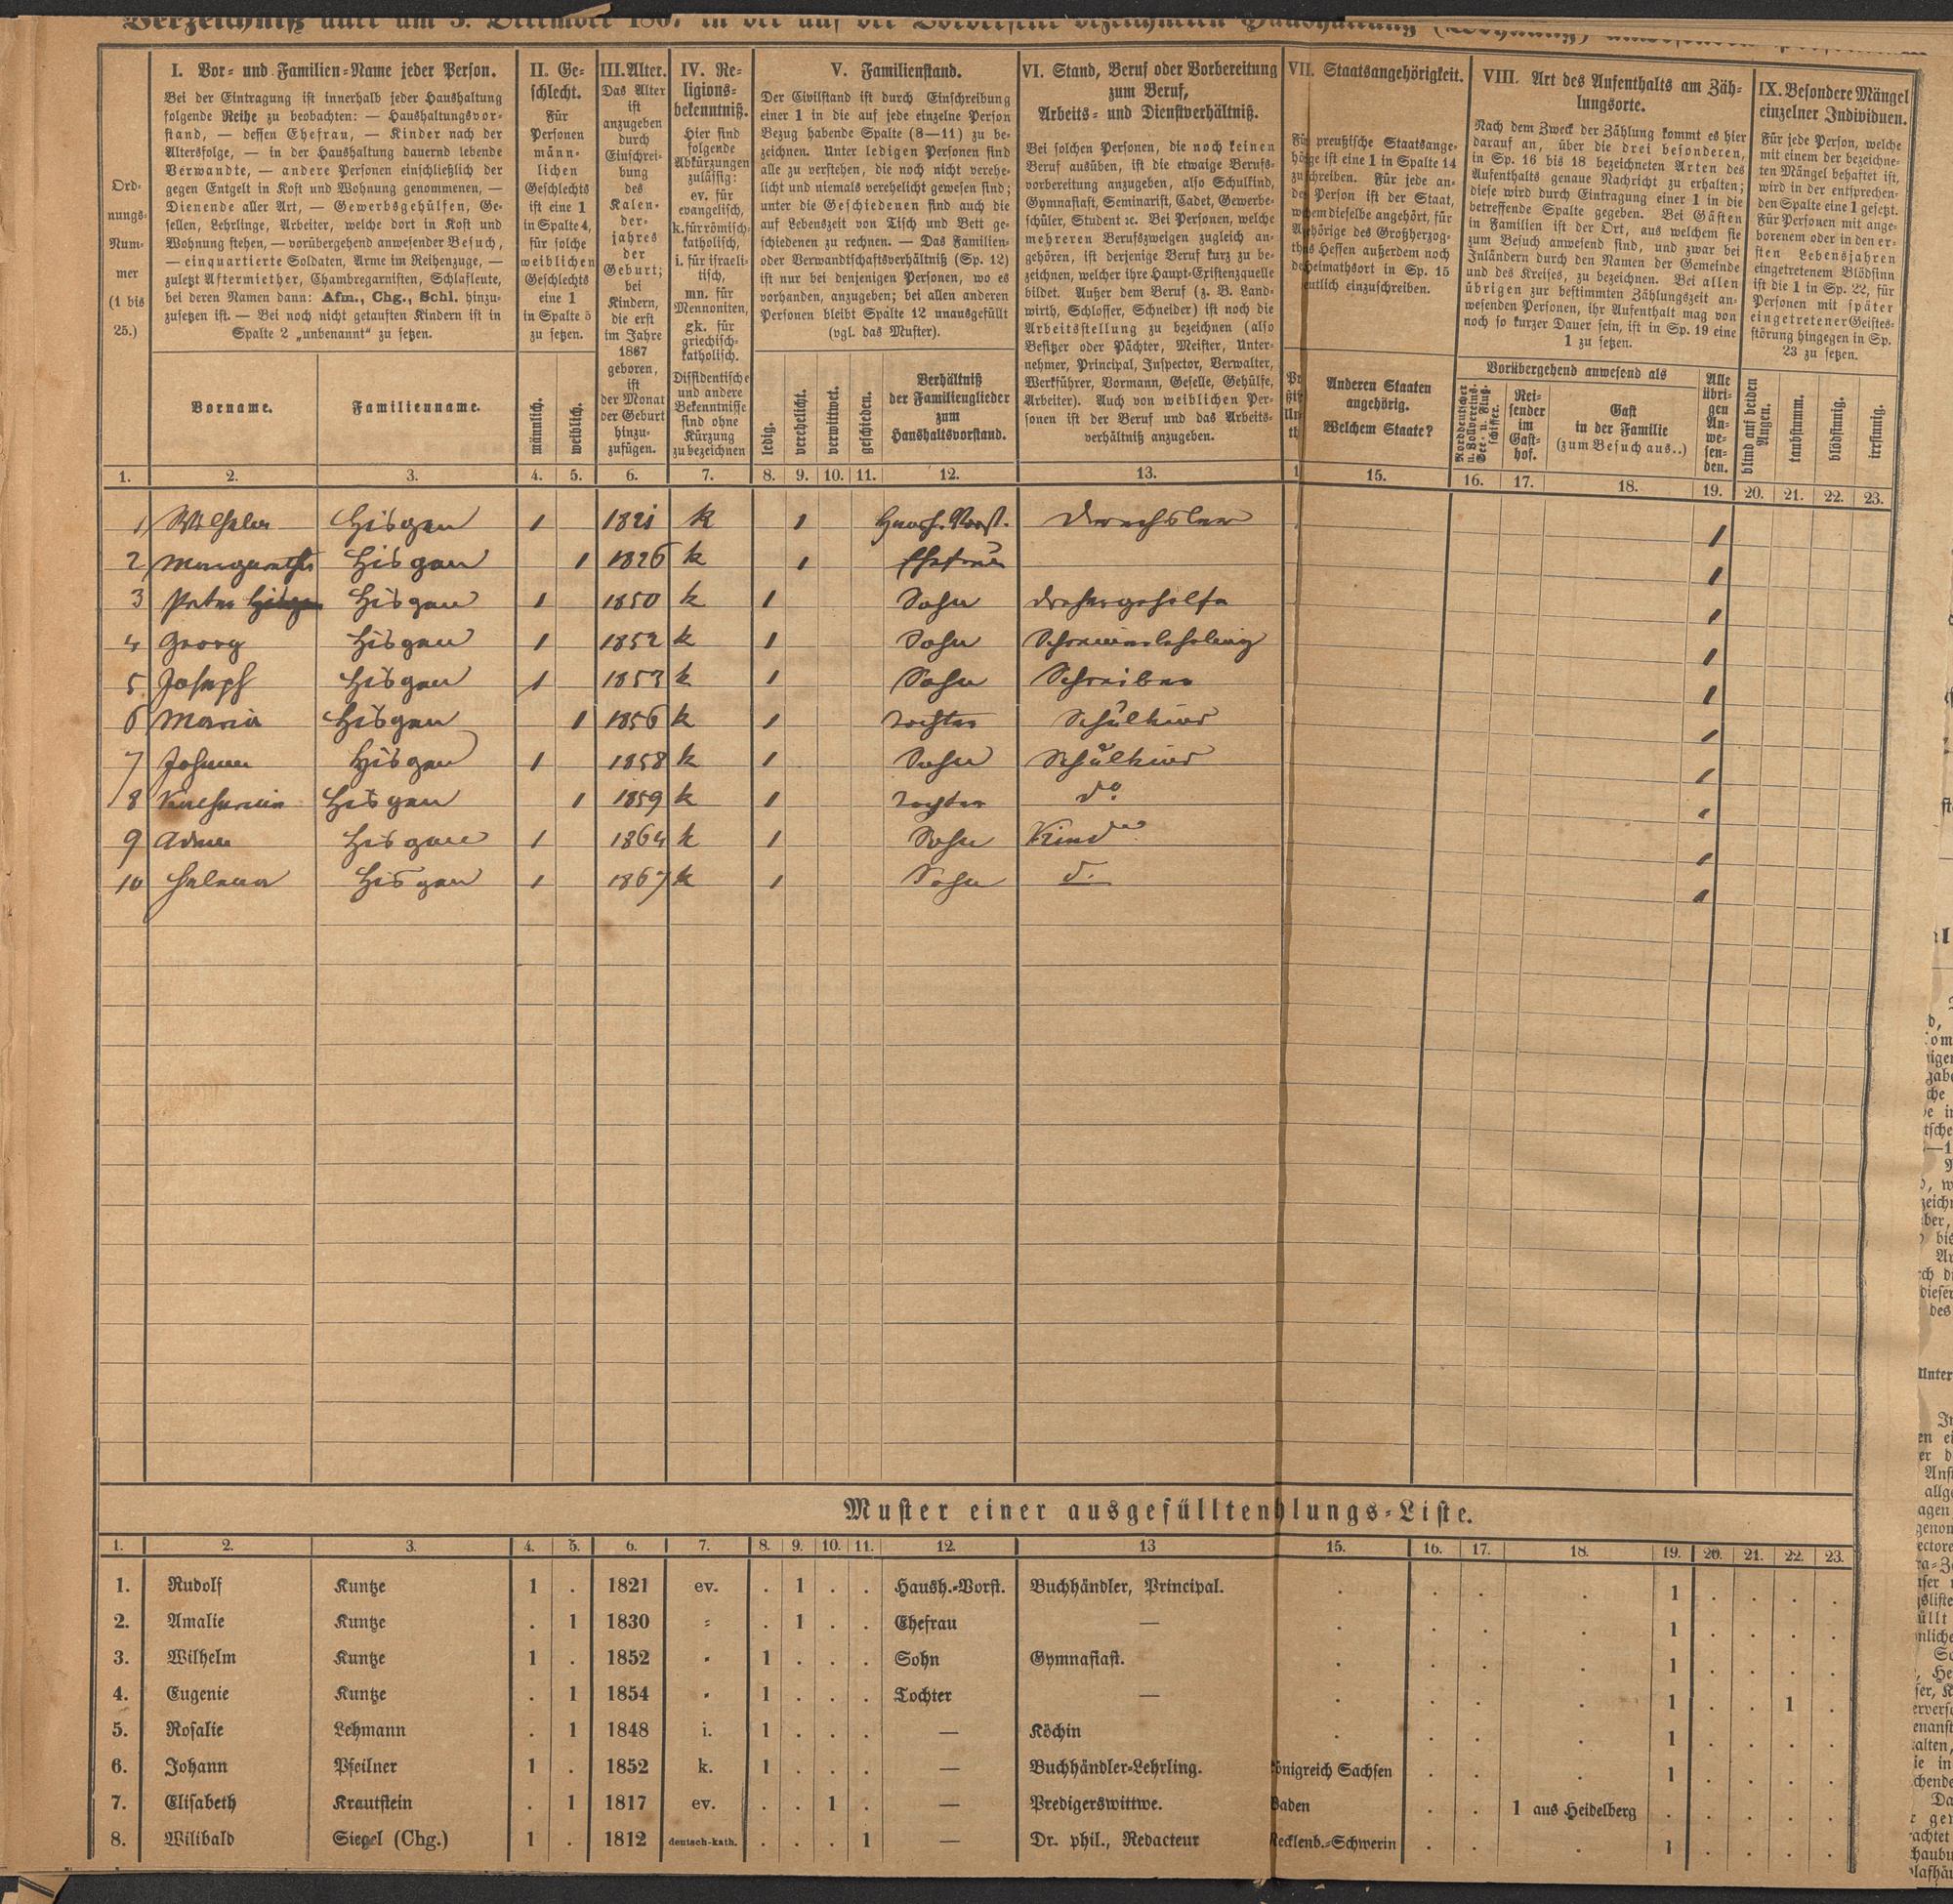 Verzeichniß aller am 3. December 1867 in der auf der Vorderseite bezeichneten Haushaltung (Wohnung)
Ord-
nungs-
Num-
mer
(1 bis
25.)
I. Vor- und Familien-Name jeder Person.
Bei der Eintragung ist innerhalb jeder Haushaltung
folgende Reihe zu beobachten: — Haushaltungsvor-
stand, — dessen Ehefrau, — Kinder nach der
Altersfolge, — in der Haushaltung dauernd lebende
Verwandte, — andere Personen einschließlich der
gegen Entgelt in Kost und Wohnung genommenen, —
Dienende aller Art, — Gewerbsgehülfen, Ge-
sellen, Lehrlinge, Arbeiter, welche dort in Kost und
Wohnung stehen, — vorübergehend anwesender Besuch,
— einquartierte Soldaten, Arme im Reihenzuge, —
zuletzt Aftermiether, Chambregarnisten, Schlafleute,
bei deren Namen dann: Afm., Chg., Schl. hinzu-
zusetzen ist. — Bei noch nicht getauften Kindern ist in
Spalte 2 „unbenannt“ zu setzen.
Vorname.
Familienname.
II. Ge-
schlecht.
Für
Personen
männ-
lichen
Geschlechts
ist eine 1
in Spalte 4,
für solche
weiblichen
Geschlechts
eine 1
in Spalte 5
zu setzen.
männlich.
weiblich.
III. Alter.
Das Alter
ist
anzugeben
durch
Einschrei-
bung
des
Kalen-
der-
jahres
der
Geburt;
bei
Kindern,
die erst
im Jahre
1867
geboren,
ist
der Monat
der Geburt
hinzu-
zufügen.
IV. Re-
ligions-
bekenntniß.
Hier sind
folgende
Abkürzungen
zulässig:
ev. für
evangelisch,
k. für römisch-
katholisch,
i. für israeli-
tisch,
mn. für
Mennoniten,
gk. für
griechisch-
katholisch.
Dissidentische
und andere
Bekenntnisse
sind ohne
Kürzung
zu bezeichnen
V. Familienstand.
Der Civilstand ist durch Einschreibung
einer 1 in die auf jede einzelne Person
Bezug habende Spalte (8—11) zu be-
zeichnen. Unter ledigen Personen sind
alle zu verstehen, die noch nicht verehe-
licht und niemals verehelicht gewesen sind;
unter die Geschiedenen sind auch die
auf Lebenszeit von Tisch und Bett ge-
schiedenen zu rechnen. — Das Familien-
oder Verwandtschaftsverhältniß (Sp. 12)
ist nur bei denjenigen Personen, wo es
vorhanden, anzugeben; bei allen anderen
Personen bleibt Spalte 12 unausgefüllt
(vgl. das Muster).
ledig.
verehelicht.
verwittwet.
geschieden.
Verhältniß
der Familienglieder
zum
Haushaltsvorstand.
VI. Stand, Beruf oder Vorbereitung
zum Beruf,
Arbeits- und Dienstverhältniß.
Bei solchen Personen, die noch keinen
Beruf ausüben, ist die etwaige Berufs-
vorbereitung anzugeben, also Schulkind,
Gymnasiast, Seminarist, Cadet, Gewerbe-
schüler, Student ꝛc. Bei Personen, welche
mehreren Berufszweigen zugleich an-
gehören, ist derjenige Beruf kurz zu be-
zeichnen, welcher ihre Haupt-Existenzquelle
bildet. Außer dem Beruf (z. B. Land-
wirth, Schlosser, Schneider) ist noch die
Arbeitsstellung zu bezeichnen (also
Besitzer oder Pächter, Meister, Unter-
nehmer, Principal, Inspector, Verwalter,
Werkführer, Vormann, Geselle, Gehülfe,
Arbeiter). Auch von weiblichen Per-
sonen ist der Beruf und das Arbeits-
verhältniß anzugeben.
VII. Staatsangehörigkeit.
preußische Staatsange-
ge ist eine 1 in Spalte 14
schreiben. Für jede an-
Person ist der Staat,
em dieselbe angehört, für
hörige des Großherzog-
Hessen außerdem noch
Heimathsort in Sp. 15
utlich einzuschreiben.
Anderen Staaten
angehörig.
Welchem Staate?
VIII. Art des Aufenthalts am Zäh-
lungsorte.
Nach dem Zweck der Zählung kommt es hier
darauf an, über die drei besonderen,
in Sp. 16 bis 18 bezeichneten Arten des
Aufenthalts genaue Nachricht zu erhalten;
diese wird durch Eintragung einer 1 in die
betreffende Spalte gegeben. Bei Gästen
in Familien ist der Ort, aus welchem sie
zum Besuch anwesend sind, und zwar bei
Inländern durch den Namen der Gemeinde
und des Kreises, zu bezeichnen. Bei allen
übrigen zur bestimmten Zählungszeit an-
wesenden Personen, ihr Aufenthalt mag von
noch so kurzer Dauer sein, ist in Sp. 19 eine
1 zu setzen.
Vorübergehend anwesend als
Norddeutscher
u. Zollvereins-
See- u. Fluß-
schiffer.
Rei-
sender
im
Gast-
hof.
Gast
in der Familie
(zum Besuch aus..)
Alle
übri-
gen
An-
we-
sen-
den.
IX. Besondere Mängel
einzelner Individuen.
Für jede Person, welche
mit einem der bezeichne-
ten Mängel behaftet ist,
wird in der entsprechen-
den Spalte eine 1 gesetzt.
Für Personen mit ange-
borenem oder in den er-
sten Lebensjahren
eingetretenem Blödsinn
ist die 1 in Sp. 22, für
Personen mit später
eingetretener Geistes-
störung hingegen in Sp.
23 zu setzen.
blind auf beiden
Augen.
taubstumm.
blödsinnig.
irrsinnig.
1. 2. 3. 4. 5. 6. 7. 8. 9. 10. 11. 12. 13. 15. 16. 17. 18. 19. 20. 21. 22. 23.
1 Wilhelm Hisgen 1 1821 k 1 Haush. Vorst. Drechsler 1
2 Margaretha Hisgen 1 1826 k 1 Ehefrau 1
3 Peter Hisgen 1 1850 k 1 Sohn Drehergehilfe 1
4 Georg Hisgen 1 1852 k 1 Sohn Schreinerlehrling 1
5 Joseph Hisgen 1 1853 k 1 Sohn Schreiber 1
6 Maria Hisgen 1 1856 k 1 Tochter Schulkind 1
7 Johann Hisgen 1 1858 k 1 Sohn Schulkind 1
8 Katharina Hisgen 1 1859 k 1 Tochter do 1
9 Adam Hisgen 1 1864 k 1 Sohn Kind 1
10 Hisgen 1 1867 k 1 Sohn d. 1
Muster einer ausgefüllten hlungs-Liste.
1. 2. 3. 4. 5. 6. 7. 8. 9. 10. 11. 12. 13 15. 16. 17. 18. 19. 20. 21. 22. 23.
1. Rudolf Kuntze 1 . 1821 ev. . 1 . . Haush.-Vorst. Buchhändler, Principal. . . . . 1 . . . .
2. Amalie Kuntze . 1 1830 = . 1 . . Ehefrau — . . . . 1 . . . .
3. Wilhelm Kuntze 1 . 1852 " 1 . . . Sohn Gymnasiast. . . . . 1 . . . .
4. Eugenie Kuntze . 1 1854 " 1 . . . Tochter — . . . . 1 . . 1 .
5. Rosalie Lehmann . 1 1848 i. 1 . . . — Köchin . . . . 1 . . . .
6. Johann Pfeilner 1 . 1852 k. 1 . . . — Buchhändler-Lehrling. önigreich Sachsen . . . 1 . . . .
7. Elisabeth Krautstein . 1 1817 ev. . . 1 . — Predigerswittwe. Baden . . 1 aus Heidelberg . . . . .
8. Wilibald Siegel (Chg.) 1 . 1812 deutsch-kath. . . . 1 — Dr. phil., Redacteur ecklenb.-Schwerin . . . 1 . . . .